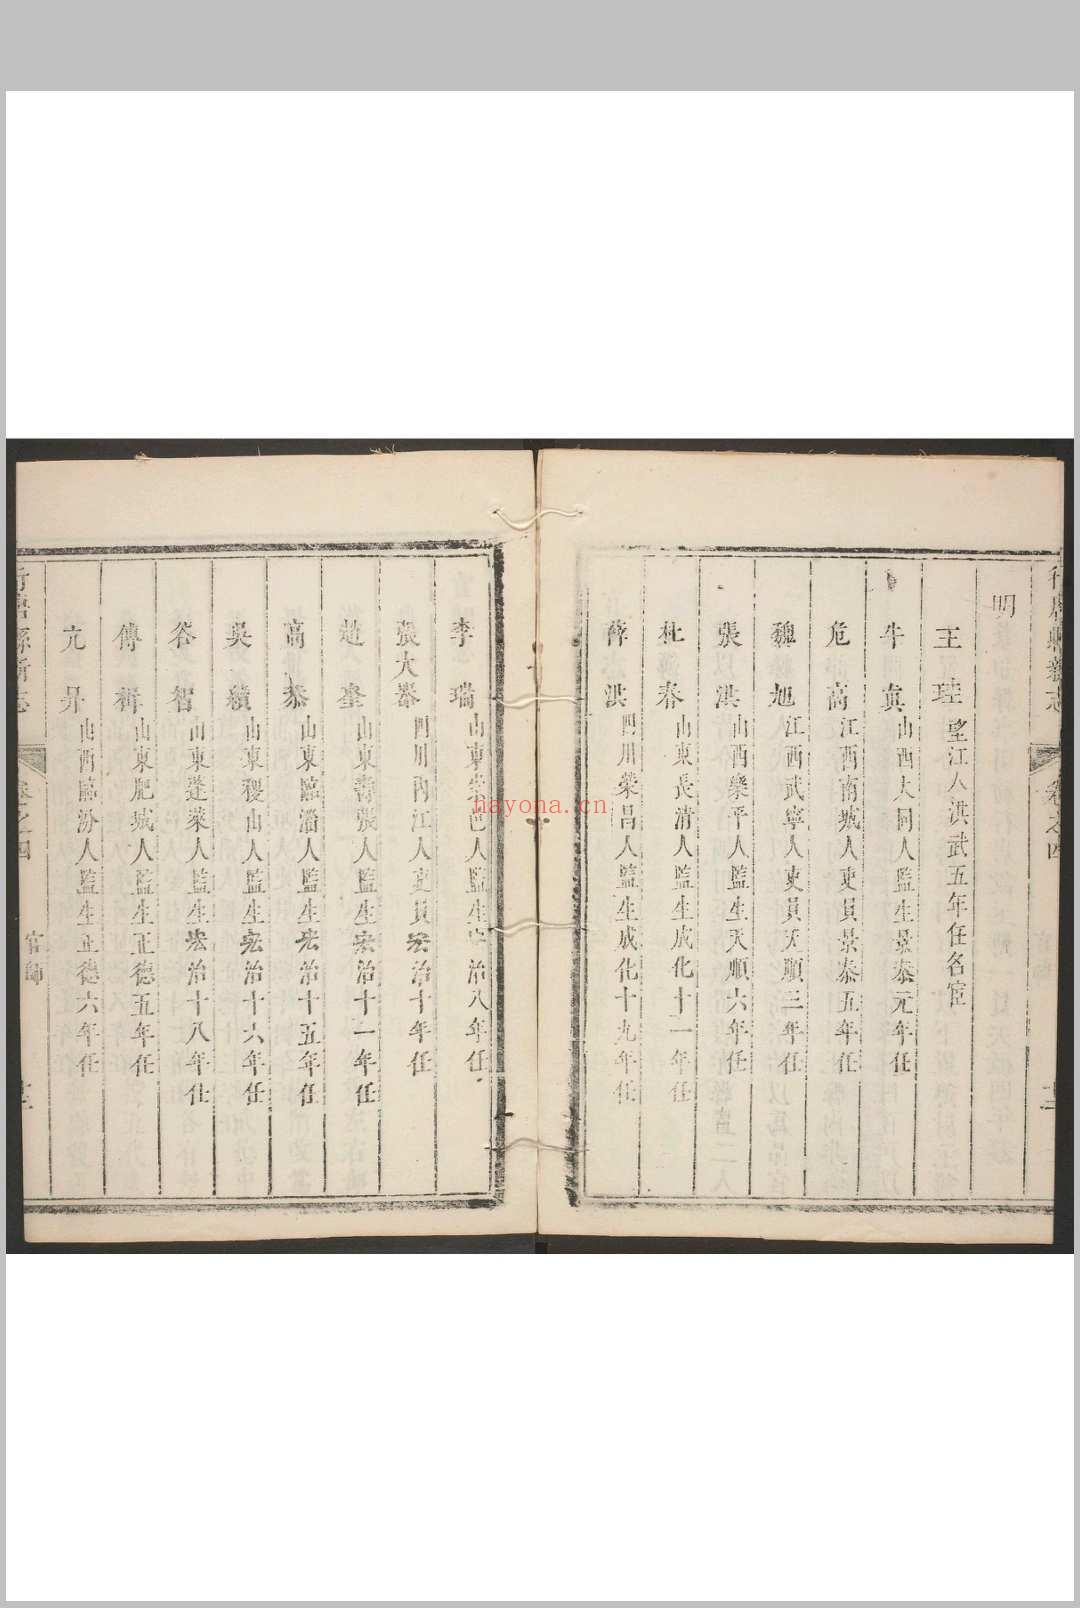 明
王 珪 望江人洪武五年任名宦
牛 真 山西大同人監生景泰元年任
危 高 江西南城人吏員景泰五年任
魏 旭 江西武寧人吏員天順三年任
張 洪 山西樂平人監生天順六年任
杜 春 山東長清人監生成化十一年任
薛 洪 四川榮昌人監生成化十九年任
李 瑞 山東 邑人監生 治八年任
張大器 四川內江人吏員宏治十年任
趙 奎 山東壽張人監生宏治十一年任
高 泰 山東臨淄人監生宏治十五年任
吳 績 山東稷山人監生宏治十六年任
谷 智 山東蓬萊人監生宏治十八年任
傅 楫 山東肥城人監生正德五年任
亢 昇 山西臨汾人監生正德六年任
行唐縣新志 卷之四 官師
hayona.cn